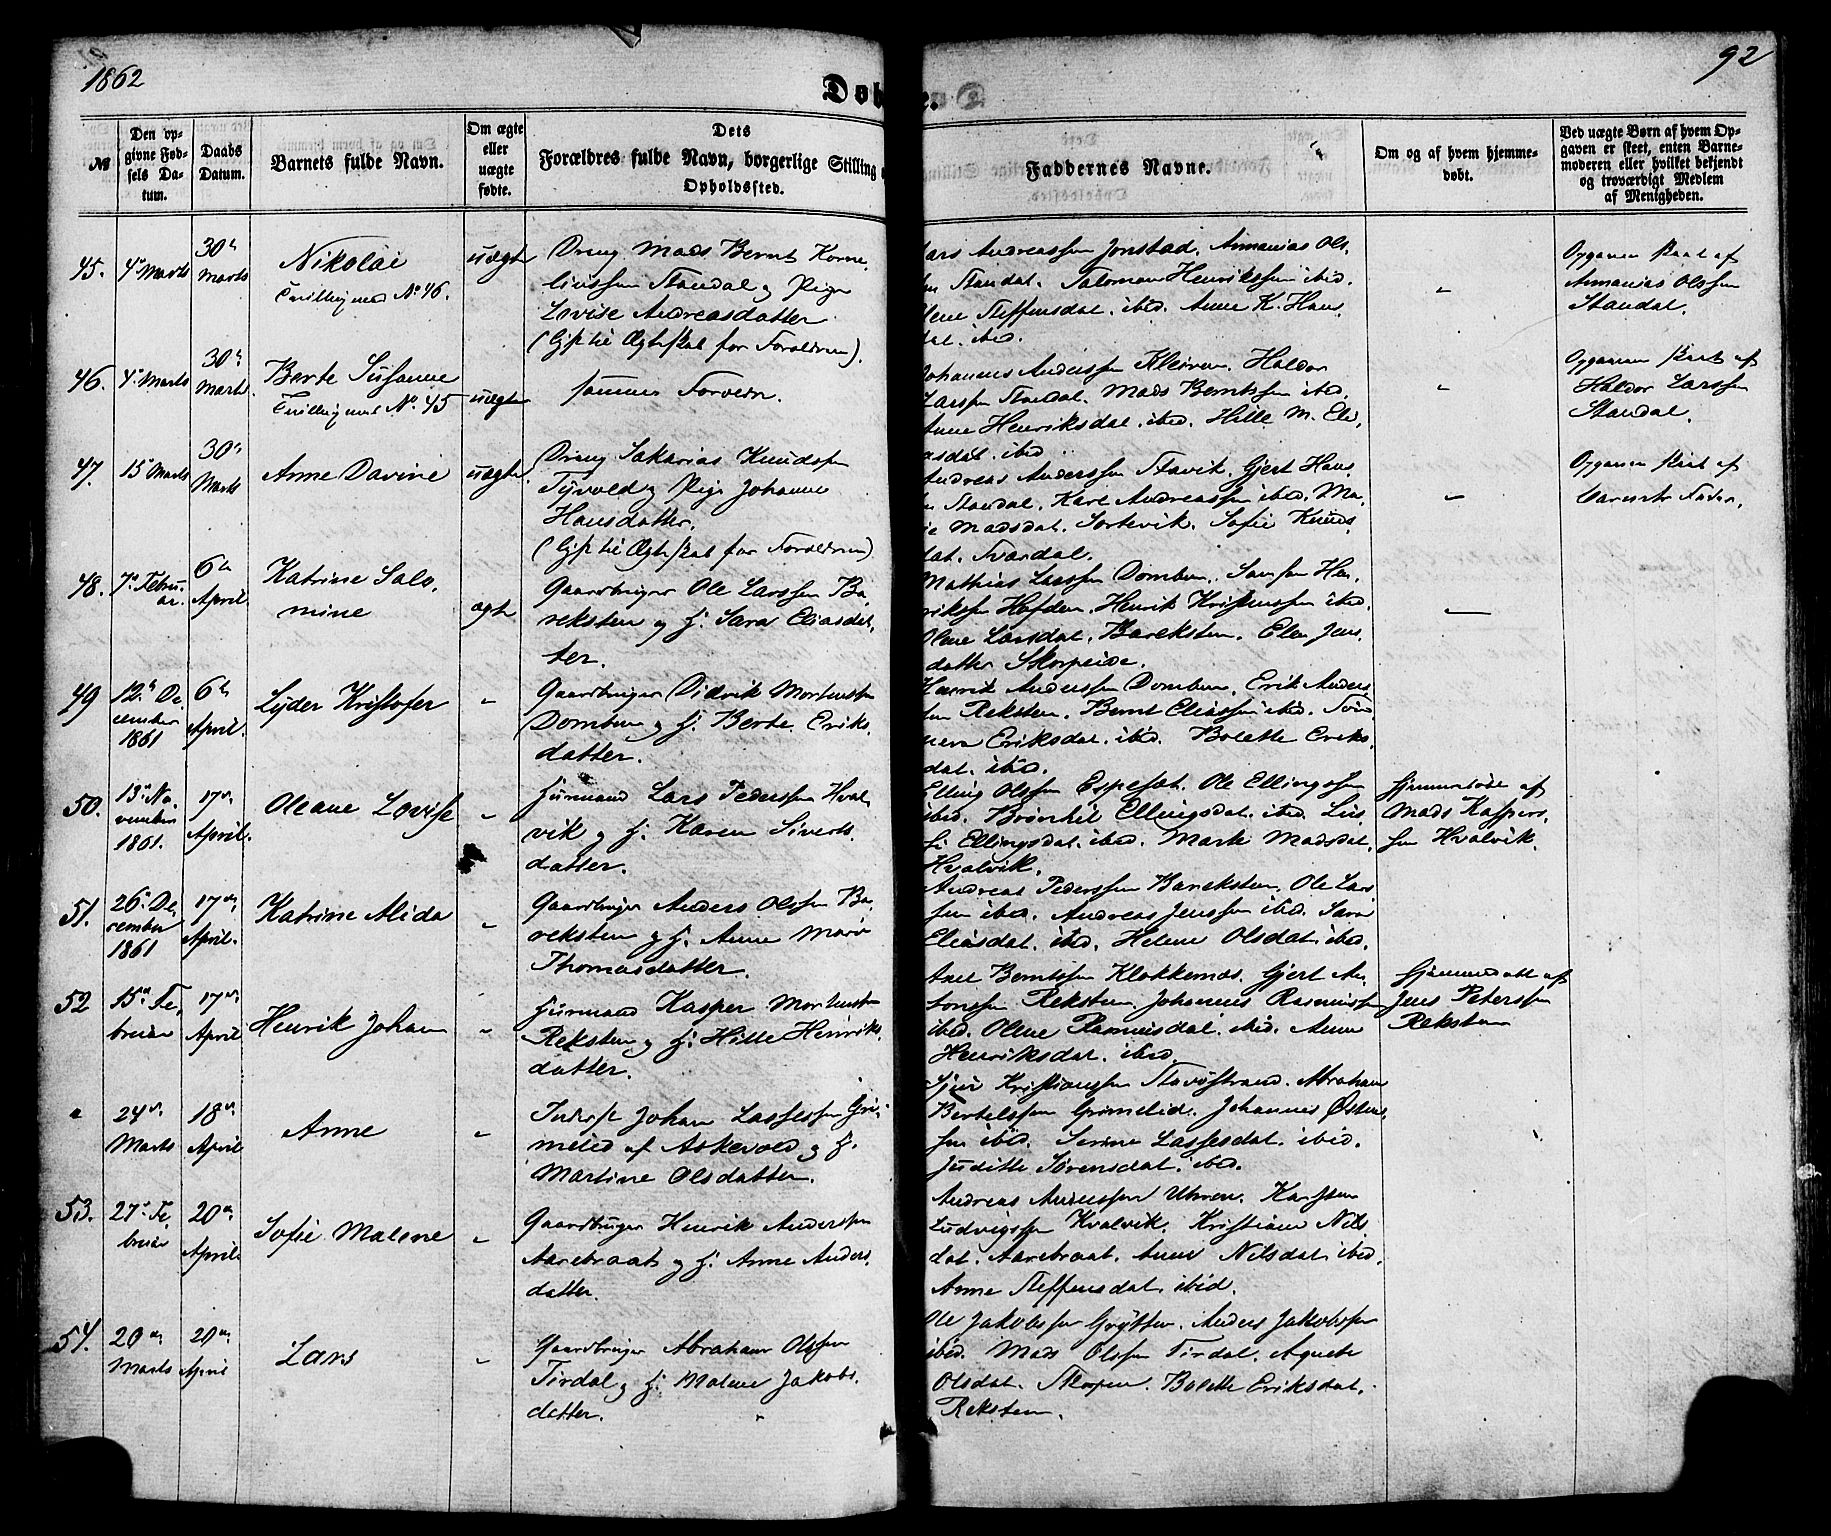 1862
92
Døbte.
№
Den op-
givne Fød-
sels Da-
tum.
Daabs
Datum.
Barnets fulde Navn.
Om ægte
eller
uægte
fødte.
Dets
Forældres fulde Navn, borgerlige Stilling
Opholdssted.
Faddernes Navne.
Om og af hvem hjemme-
døbt.
Ved uægte Børn af hvem Op-
gaven er skeet, enten Barne-
moderen eller hvilket bekjendt
og troværdigt Medlem
af Menigheden.
45.
4de Marts
30te
Marts
Nikolai
Tvilling med No 46.
uægte
Dreng Mads Bernt Korne-
liussen Standal og Pige
Lovise Andreasdatter
(Gift til Ægteskab for Forældrene).
Lars Andreassen Jonstad. Annanias Ols-
sen Standal. Salomon Henrikssen ibid.
Steffensdat. ibid. Anne K. Hans-
dat. ibid.
Opgaven skeet af
Annanias Olssen
Standal.
46.
4de Marts
30te
Marts
Berte Susanne
Tvilling med No 45
uægte
sammes Forældre
Johannes Anderssen Kleiven. Haldor
Larssen Standal. Mads Berntssen ibid.
Anne Henriksdat. ibid. Hille M. Eli-
asdat. ibid.
Opgaven skeet af
Haldor Larssen
Standal.
47.
15de Marts
30te
Marts
Anne Davine
uægte
Dreng Sakarias Knudssen
Tyvold og Pige Johanne
Hansdatter.
(Gift til Ægteskab for Forældrene)
Andreas Anderssen Stavik. Gjert Hans-
sen Standal. Karl Andreassen ibid. Ma-
Madsdat. Sortevik. Sofie Knuds-
dat. Svardal.
Opgaven skeet af
Barnets Fader.
48.
7de Febru-
ar.
6te
April
Katrine Salo-
mine
ægte
Gaardbruger Ole Larssen Ba-
reksten og H. Sara Eliasdat-
ter.
Mathias Larssen Domben. Samson Hen-
rikssen Hafden. Henrik Kristenssen ibid.
Olene Larsdat. Bareksten. Elen Jens-
datter Skorpeide.
49
12te De-
cember
1861
6te
April.
Lyder Kristofer
"
Gaardbruger Didrik Mortenssen
Domben og H. Berte Eriks-
datter.
Henrik Anderssen Domben. Erik Anders-
sen Reksten. Bernt Eliassen ibid.
Eriksdat. ibid. Bolette Eriks-
dat. ibid.
50.
13de No-
vember
1861.
17de
April.
Oleane Lovise
"
Huusmand Lars Pederssen Hval-
vik og H. Karen Siverts-
datter.
Elling Olssen Espeset. Ole Ellingssen
ibid. Brønhil Ellingsdat. ibid. Lis-
Ellingsdat. ibid. Mark Madsdat.
Hvalvik.
Hjemmedøbt af
Mads Kaspers-
sen Hvalvik.
51.
26de De-
cember
1861
17de
April.
Katrine Alida
"
Gaardbruger Anders Olssen Ba-
reksten og H. Anne Marie
Thomasdatter.
Andreas Pederssen Bareksten. Ole Lars-
sen ibid. Andreas Jenssen ibid. Sara
Eliasdat. ibid. Helene Olsdat. ibid.
52
15de Fe-
bruar
17de
April
Henrik Johan
"
Huusmand Kasper Mortenssen
Reksten og H. Hille Henriks-
datter.
Axel Berntssen Klokkernes. Gjert An-
tonssen Reksten. Johannes Rasmussen
ibid. Olene Rasmusdat. ibid. Anne
Henriksdat. ibid.
Hjemmedøbt af
Jens Peterssen
Reksten
"
24de
Marts
18de
April
Anne
"
Inderst Johan Lassessen Gri-
melid af Askevold og H.
Martine Olsdatter.
Sjur Kristianssen Stavøstrand. Abraham
Bertelssen Grimelid. Johannes Østens-
sen ibid. Serine Lassesdat. ibid.
Juditte Sørensdat. ibid.
53.
27de Fe-
bruar
20de
April
Sofie Malene
"
Gaardbruger Henrik Anderssen
Aarebraat og H. Anne Anders-
datter.
Andreas Anderssen Uhren. Karsten
Ludvigssen Hvalvik. Kristiane Nils-
dat. Aarebraat. Anne Nilsdat. ibid.
Anne Steffensdat. ibid.
54.
20de
Marts
20de
April
Lars
"
Gaardbruger Abraham Olssen
Tirdal og H. Malene Jakobs-
datter.
Ole Jakobssen Grytten. Anders Jakobssen
ibid. Mads Olssen Tirdal. Agnete
Olsdat. Bolette Eriksdat.
Reksten.